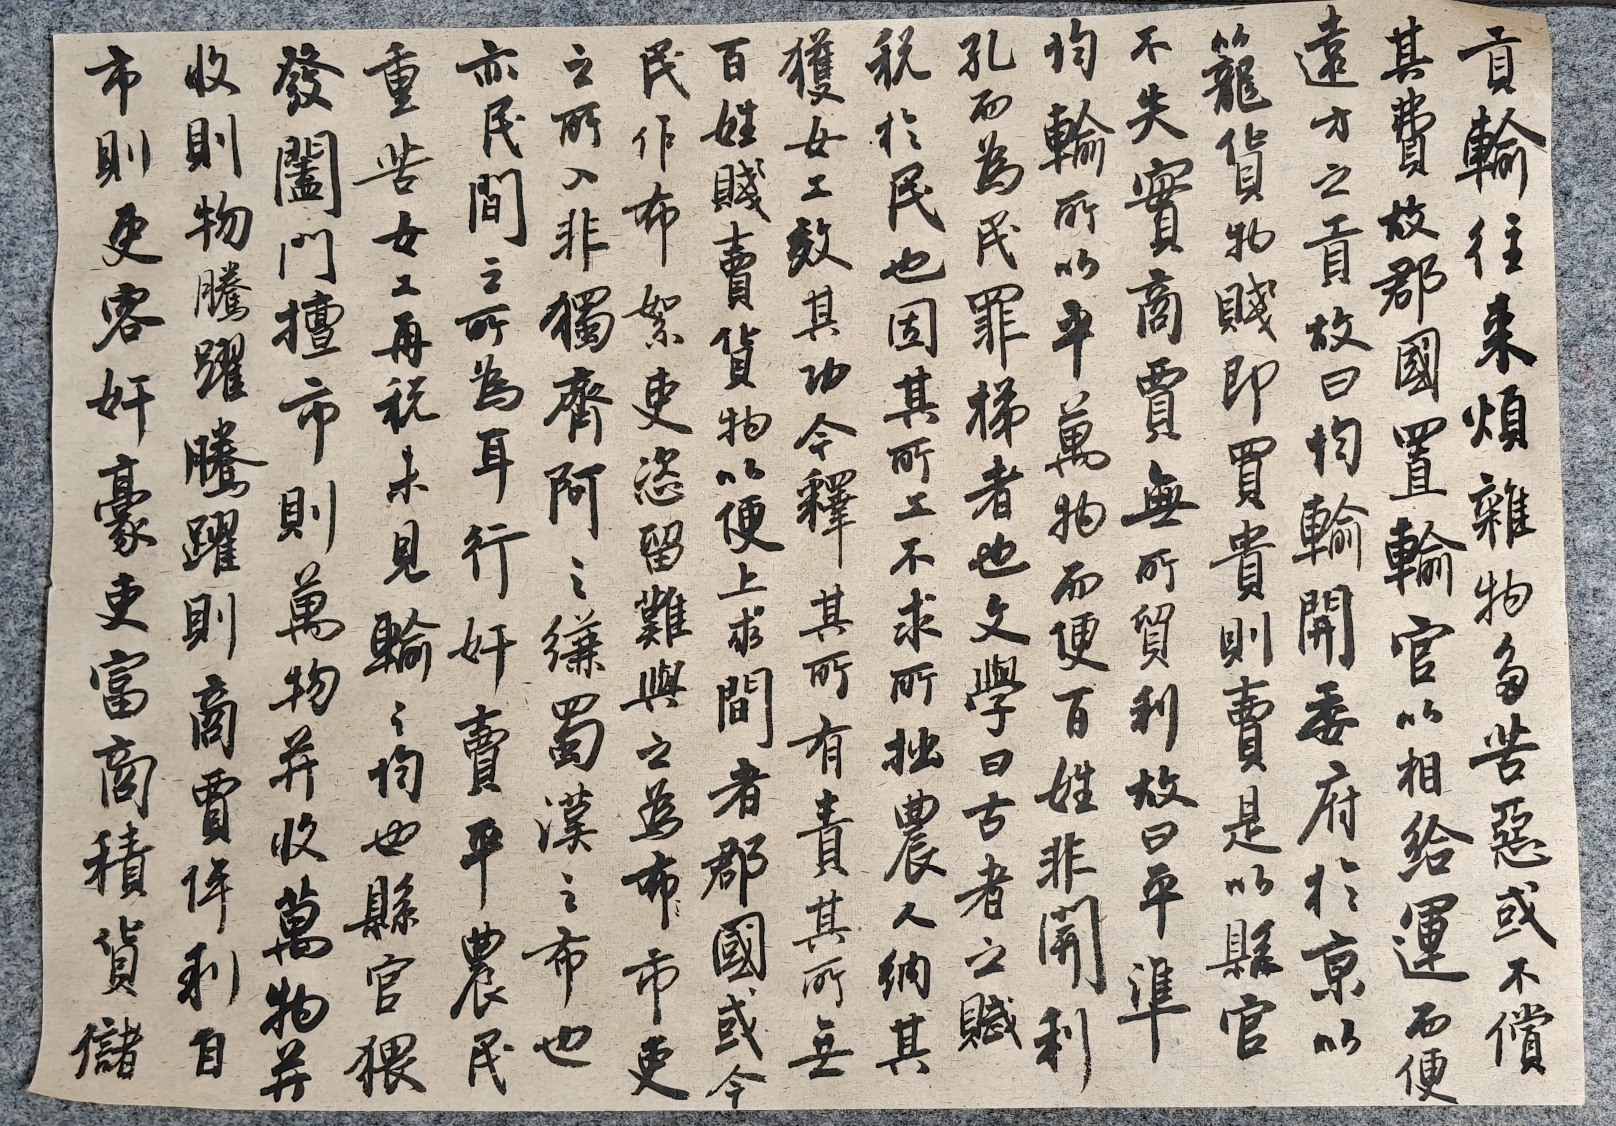 貢輸往来煩雜物多苦惡或不償
其費故郡國置輸官以相給運而便
遠方之貢故曰均輸開委府於京以
籠貨物賤即買貴則賣是以縣官
不失實商賈無所貿利故曰平準
均輸所以平萬物而便百姓非開利
孔而為民罪梯者也文學曰古者之賦
税於民也因其所工不求所拙農人納其
獲女工效其功今釋其所有責其所無
百姓賤賣貨物以便上求間者郡國或今
民作布絮吏恣留難與之為布〻市吏
之所入非獨齊阿之縑蜀漢之布也
亦民間之所為耳行奸賣平農民
重苦女工再税未見輸之均也縣官猥
發闔門擅市則萬物并收萬物并
收則物騰躍騰躍則商賈侔利自
市則吏容奸豪吏富商積貨儲